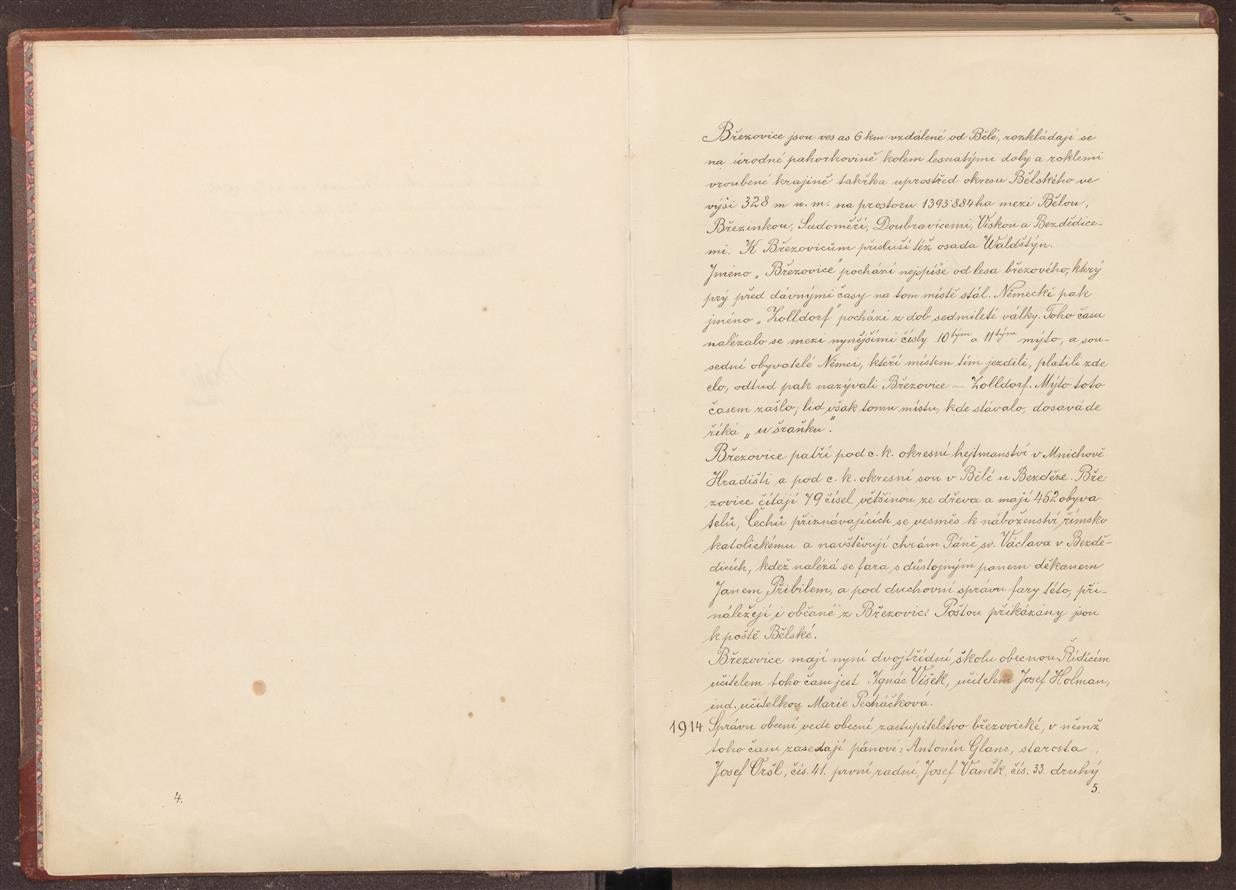 Březovice jsou ves as 6 km vzdálené od Bělé, rozkládají se
na úrodné pahorkovině kolem lesnatými doby a roklemi
vroubené krajině takřka uprostřed okresu Bělského ve
výši 328 m n. m. na prostoru 1393·884 ha mezi Bělou,
Březinkou, Sudoměří, Doubravicemi, Vískou a Bezdědice-
mi. K Březovicům přísluší též osada Waldštýn.
Jméno „Březovice" pochází nejspíše od lesa březového, který
prý před dávnými časy na tom místě stál. Německé pak
jméno „Zolldorf" pochází z dob sedmileté války. Toho času
nalézalo se mezi nynějšími čísly 10tým a 11tým mýto, a sou-
sední obyvatelé Němci, kteří místem tím jezdili, platili zde
clo, odtud pak nazývali Březovice — Zolldorf. Mýto toto
časem zašlo, lid však tomu místu, kde stávalo, dosaváde
říká „u šraňku".
Březovice patří pod c. k. okresní hejtmanství v Mnichově
Hradišti a pod c. k. okresní sou v Bělé u Bezděze. Bře
zovice čítají 79 čísel většinou ze dřeva a mají 452 obyva
telů, Čechů přiznávajících se vesměs k náboženství římsko
katolickému a navštěvují chrám Páně sv. Václava v Bezdě-
dicích, kdež nalézá se fara s důstojným panem děkanem
Janem Přibilem, a pod duchovní správu fary této, při-
náležejí i občané z Březovic. Poštou přikázány jsou
k poště Bělské.
Březovice mají nyní dvojtřídní školu obecnou. Řídícím
učitelem toho času jest Ignác Víšek, učitelem Josef Holman,
ind. učitelkou Marie Pecháčková.
1914 Správu obecní vede obecní zastupitelstvo březovické, v němž
toho času zasedají pánové: Antonín Glanc, starosta
Josef Oršl, čís. 41. první radní, Josef Vaněk, čís. 33. druhý
4.
5.